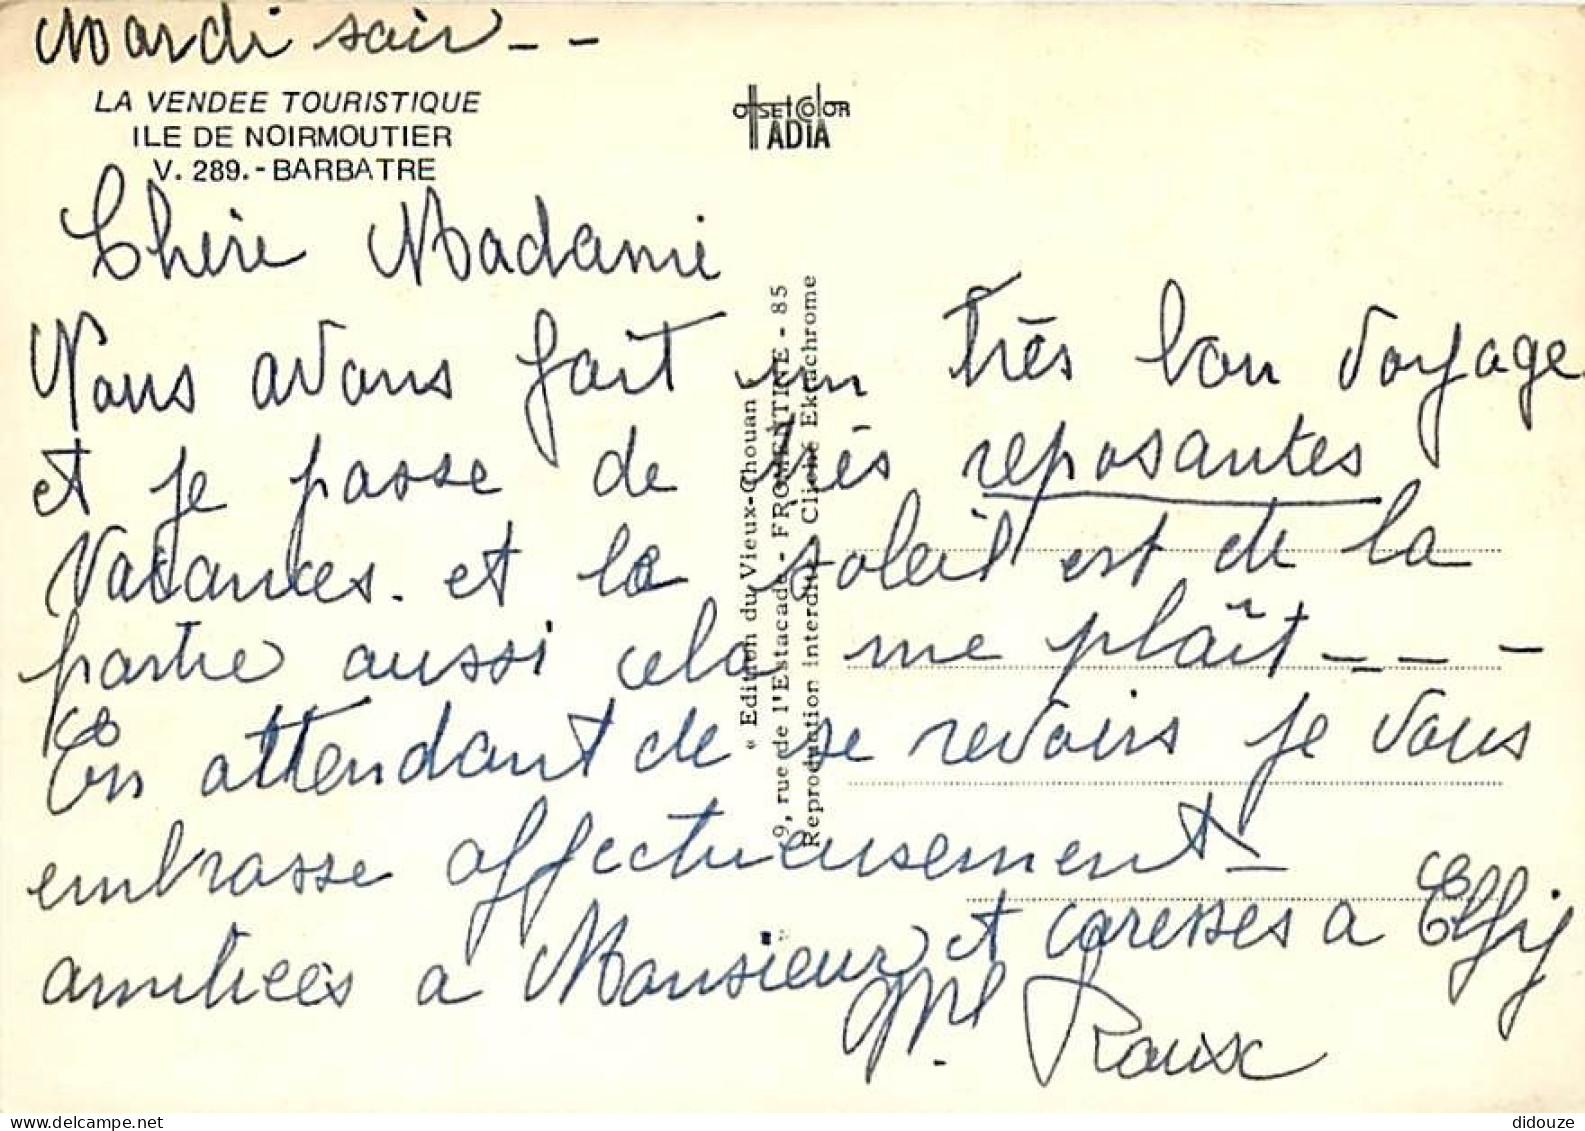 Mardi soir - -
LA VENDEE TOURISTIQUE
ILE DE NOIRMOUTIER
V. 289.- BARBATRE
OffSEt COlOR
IADIA
Chère Madame
Nous avons fait un Très bon voyage.
et je passe de très reposantes
Vacances. et le soleil est de la
partie aussi cela me plaît - - - -
En attendant de se revoirs je vous
embrasse affectueusement -
amitiées a Monsieur et caresses a Elfy
Ml Roux
« Edition du Vieux-Chouan »
9, rue de l'Estacade - FROMENTINE - 85
Reproduction interdite Cliché Ektachrome
didouze